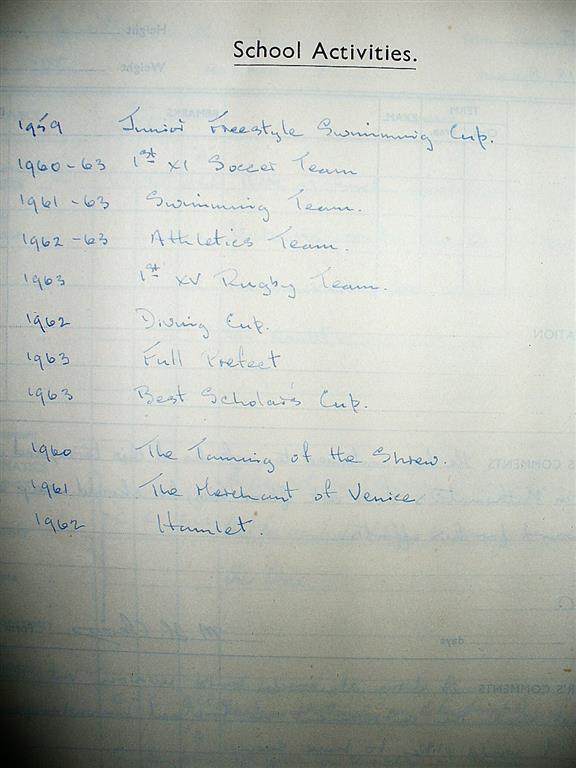 School Activities.
1959 Junior Freestyle Swimming Cup.
1960-63 1st XI Soccer Team
1961-63 Swimming Team.
1962-63 Athletics Team.
1963 1st XV Rugby Team.
1962 Diving Cup.
1963 Full Prefect
1963 Best Scholar's Cup.
1960 The Taming of the Shrew.
1961 The Merchant of Venice
1962 Hamlet.